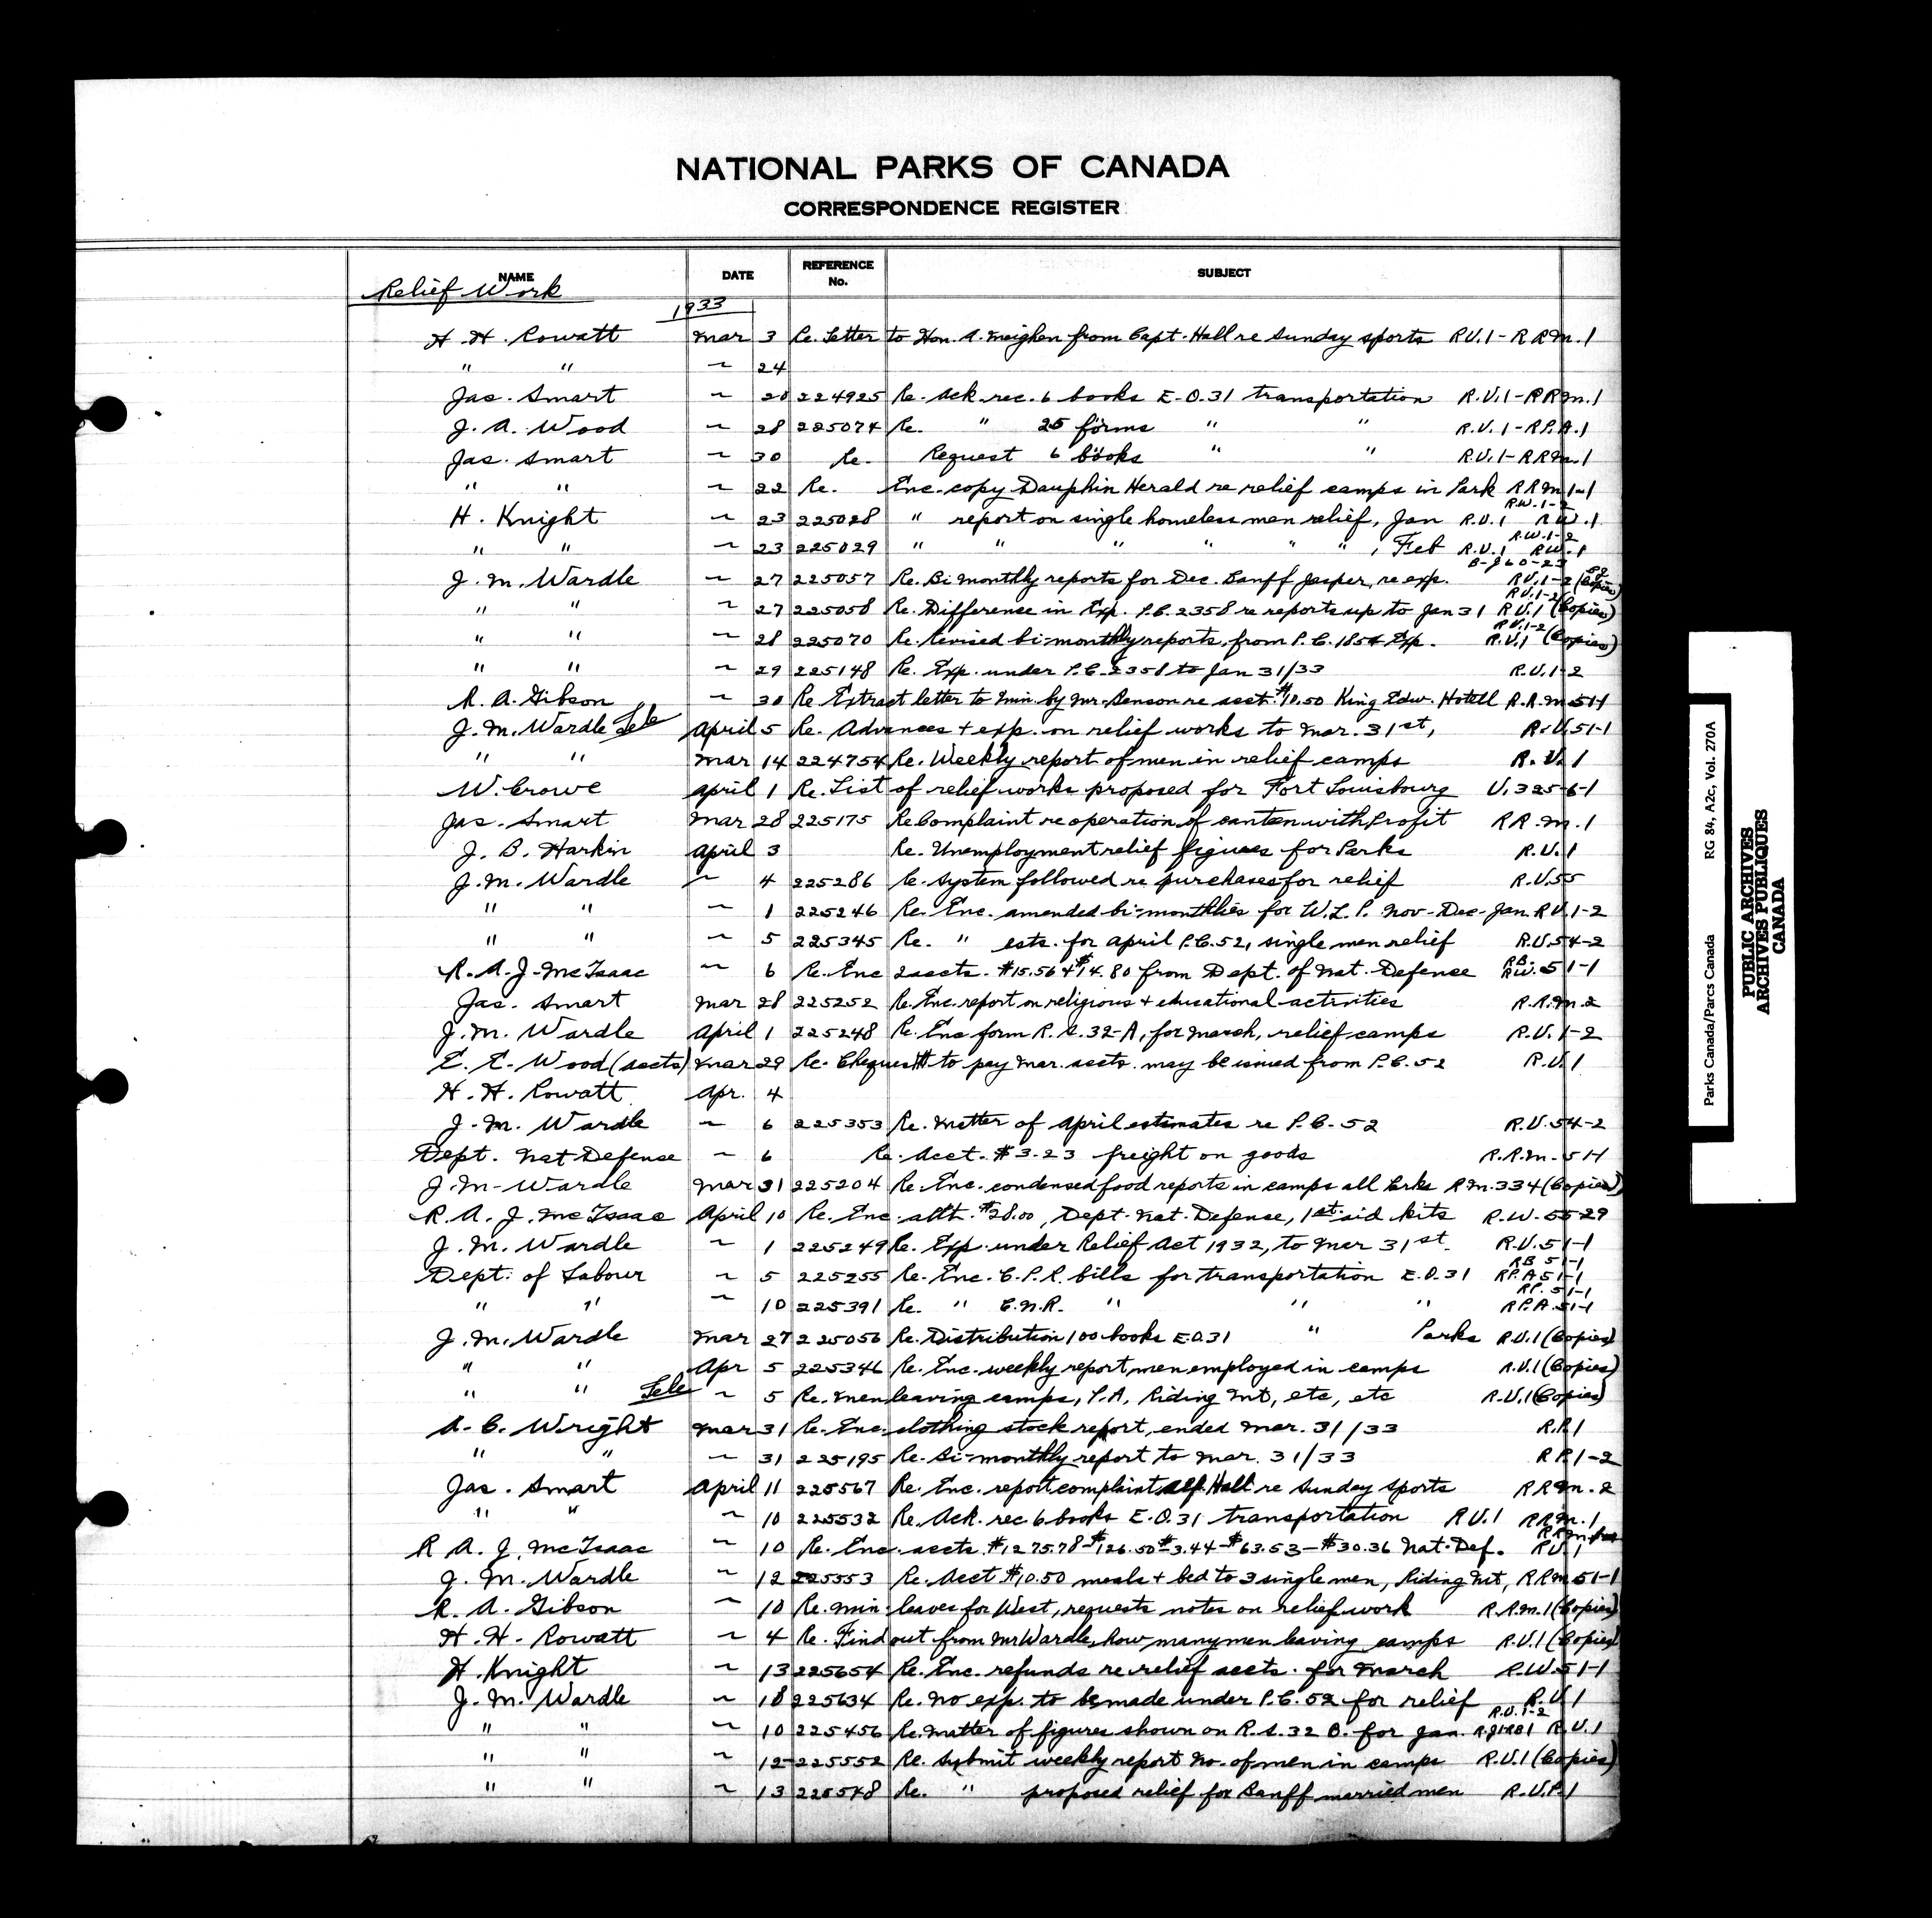 NATIONAL PARKS OF CANADA
CORRESPONDENCE REGISTER
NAME DATE REFERENCE No. SUBJECT
Relief Work
1933
H. H. Rowatt Mar 3 Re. Letter to Hon. A. Meighen from Capt. Hall re Sunday sports R.U.1 - R R M.1
" " ~ 24
Jas. Smart ~ 20 224925 Re. Ack. rec. 6 books E.O.31 transportation R.U.1 - R R M.1
J. A. Wood ~ 28 225074 Re. " 25 forms " " R.U.1 - R P.A.1
Jas. Smart ~ 30 Re. Request 6 books " " R.U.1 - R R M.1
" " ~ 22 Re. Enc. copy Dauphin Herald re relief camps in Park R R M 1-1
R.W.1-2
H. Knight ~ 23 225028 " report on single homeless men relief, Jan R.U.1 R W.1
R.W.1-2
" " ~ 23 225029 " " " " " " , Feb R.U.1 R W.1
B-J 60-23
J. M. Wardle ~ 27 225057 Re. Bi monthly reports for Dec. Banff Jasper, re exp. R.U.1-2 (Copies)
R U.1-2
" " ~ 27 225058 Re. Difference in Exp. P.C. 2358 re reports up to Jan 31 R U.1 (Copies)
R U.1-2
" " ~ 28 225070 Re. Revised bi-monthly reports, from P.C. 1854 Exp. R.U.1 (Copies)
" " ~ 29 225148 Re. Exp. under P.C. 2358 to Jan 31/33 R.U.1-2
R. A. Gibson ~ 30 Re Extract letter to Min. by Mr. Benson re acct. $10.50 King Edw. Hotell R.R.M 51-1
J. M. Wardle Tele April 5 Re. Advances + exp. on relief works to Mar. 31st, R.U.51-1
" " Mar 14 224754 Re. Weekly report of men in relief camps R.U.1
W. Crowe April 1 Re. List of relief works proposed for Fort Louisbourg U.325-6-1
Jas. Smart Mar 28 225175 Re Complaint re operation of canteen with Profit R R.M.1
J. B. Harkin April 3 Re. Unemployment relief figures for Parks R.U.1
J. M. Wardle ~ 4 225286 Re. System followed re purchases for relief R.U.55
" " ~ 1 225246 Re. Enc. amended bi-monthlies for W.L.P. Nov-Dec-Jan. R U.1-2
" " ~ 5 225345 Re. " ests. for April P.C.52, single men relief R.U.54-2
R.B.
R. A. J. McIsaac ~ 6 Re. Enc 2 accts. $15.56 + $14.80 from Dept. of Nat. Defense R.W.51-1
Jas. Smart Mar 28 225252 Re. Enc. report on religious + educational activities R.R.M.2
J. M. Wardle April 1 225248 Re. Enc form R.S. 32-A, for March, relief camps R.U.1-2
E. E. Wood (accts) Mar 29 Re. Cheques to pay Mar. accts. may be issued from P.C. 52 R.U.1
H. H. Rowatt Apr. 4
J. M. Wardle ~ 6 225353 Re. Matter of April estimates re P.C. 52 R.U.54-2
Dept. Nat Defense ~ 6 Re. Acct. $3.23 freight on goods R.R.M. 51-1
J. M. Wardle Mar 31 225204 Re. Enc. condensed food reports in camps all Parks R.M.334 (Copies)
R. A. J. McIsaac April 10 Re. Enc. $28.00, Dept. Nat. Defense, 1st aid kits R.W.55-29
J. M. Wardle ~ 1 225249 Re. Exp. under Relief Act 1932, to Mar 31st. R.U.51-1
RB 51-1
Dept. of Labour ~ 5 225255 Re. Enc. C.P.R. bills for transportation E.O.31 RP.A 51-1
R.P. 51-1
" " ~ 10 225391 Re. " C.N.R. " " " R P.A.51-1
J. M. Wardle Mar 27 225056 Re. Distribution 100 books E.O.31 " Parks R.U.1 (Copies)
" " Apr 5 225346 Re. Enc. weekly report men employed in camps R.U.1 (Copies)
" " Tele ~ 5 Re. Men leaving camps, P.A, Riding Mt, etc, etc R.U.1 (Copies)
A. C. Wright Mar 31 Re. Enc. clothing stock report, ended Mar. 31/33 R.P.1
" " ~ 31 225195 Re. Bi-monthly report to Mar. 31/33 R P.1-2
Jas. Smart April 11 225567 Re. Enc. report complaint Hall re Sunday Sports R R M.2
" " ~ 10 225532 Re. Ack. rec 6 books E.O.31 transportation R U.1 R R M.1
R. A. J. McIsaac ~ 10 Re. Enc. accts. $1275.78 - $126.50 - $3.44 - $63.53 - $30.36 Nat. Def. R U.1
J. M. Wardle ~ 12 225553 Re. Acct $10.50 meals + bed to 3 single men, Riding Mt, R R M 51-1
R. A. Gibson ~ 10 Re. Min. leaves for West, requests notes on relief work R.R.M.1 (Copies)
H. H. Rowatt ~ 4 Re. Find out from Mr Wardle, how many men leaving camps R.U.1 (Copies)
H. Knight ~ 13 225654 Re. Enc. refunds re relief accts. for March R.W.51-1
J. M. Wardle ~ 18 225634 Re. No exp. to be made under P.C. 52 for relief R.U.1
R.U.1-2
" " ~ 10 225456 Re. Matter of figures shown on R.S. 32 B. for Jan. R.J1 RB1 R.U.1
" " ~ 12 225552 Re. Submit weekly report No. of men in camps R.U.1 (Copies)
" " ~ 13 225548 Re. " proposed relief for Banff married men R.U.P.1
Parks Canada/Parcs Canada RG 84, A2c, Vol. 270A
PUBLIC ARCHIVES
ARCHIVES PUBLIQUES
CANADA